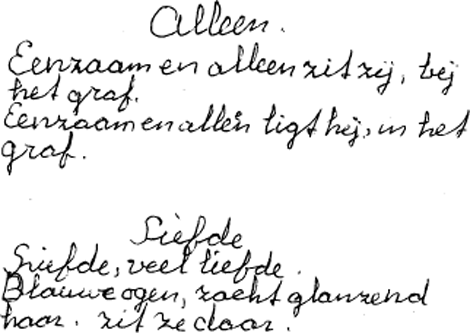 Alleen.
Eenzaam en alleen zit zij, bij
het graf.
Eenzaam en alleen ligt hij, in het
graf.
Liefde
Liefde, veel liefde.
Blauwe ogen, zacht glanzend
haar. zit ze daar.